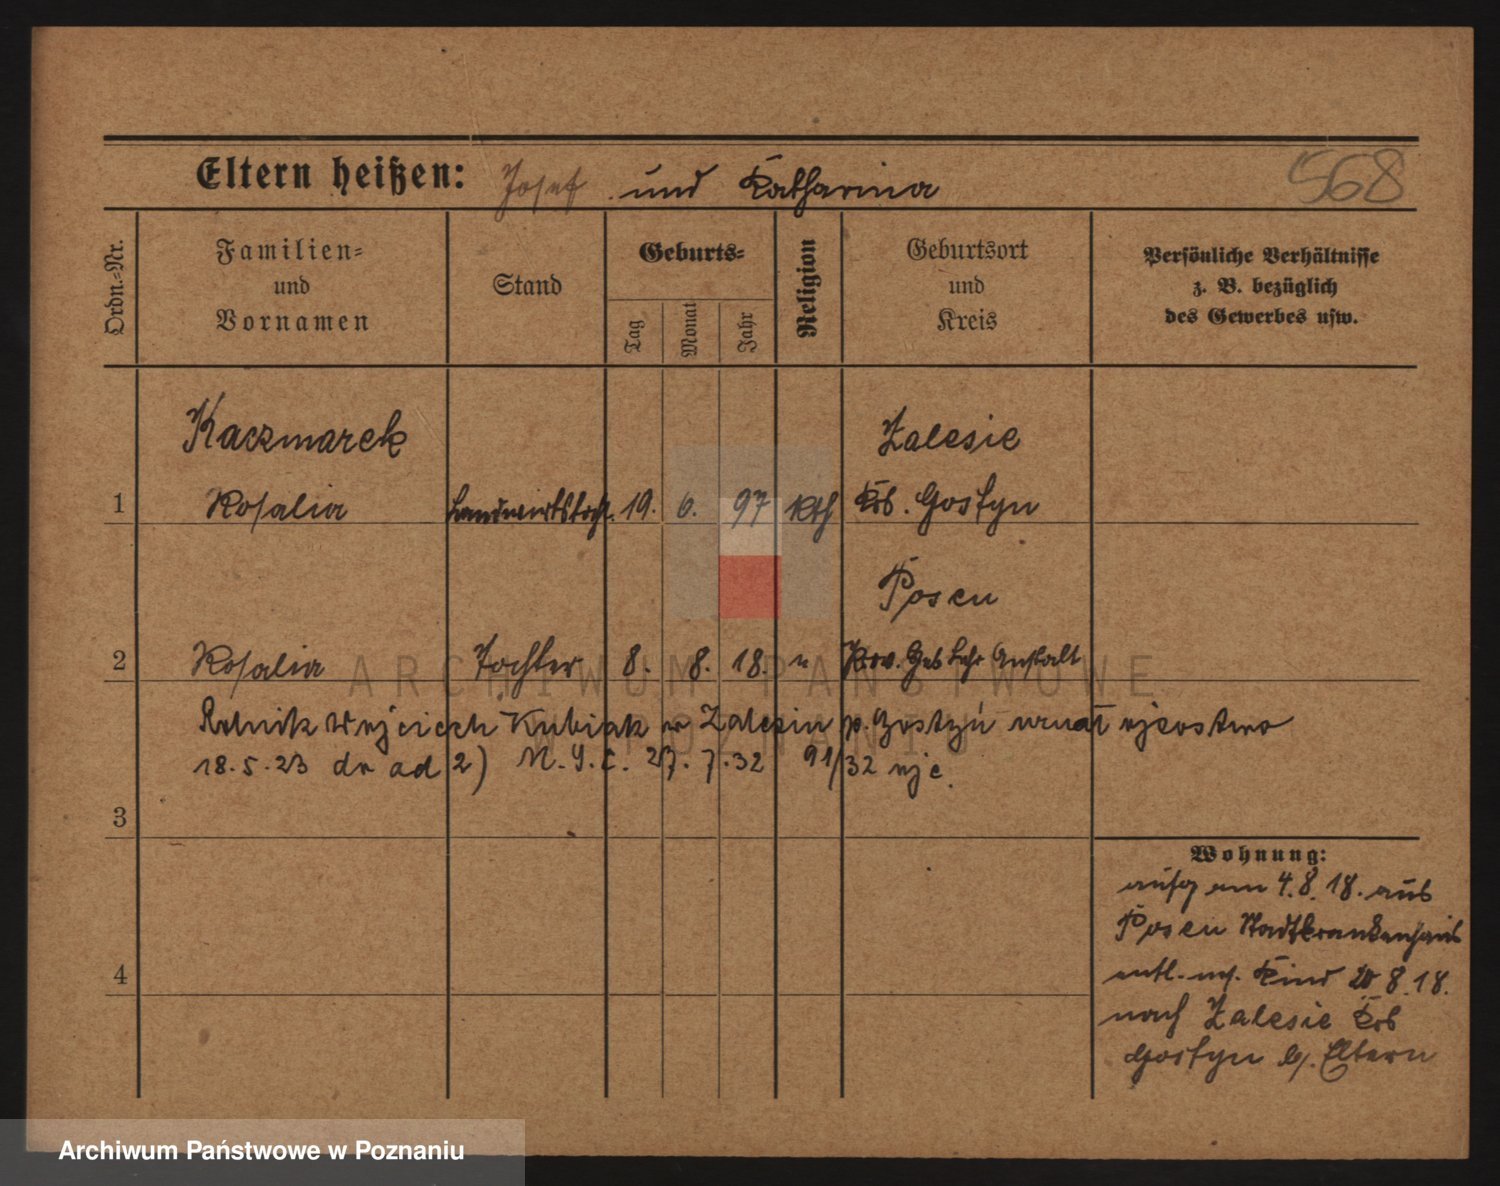 Eltern heißen: Josef und Katharina
568
Ordn.-Nr.
Familien-
und
Vornamen
Stand
Geburts-
Tag
Monat
Jahr
Religion
Geburtsort
und
Kreis
Persönliche Verhältnisse
z. B. bezüglich
des Gewerbes usw.
Kaczmarek
Zalesie
1 Rosalia Landwirtstocht. 19. 6. 97 Kth Krs. Gostyn
Posen
2 Rosalia Tochter 8. 8. 18. " Prov. Heb Lehr Anstalt
Rolnik Wojciech Kubiak w Zalesiu p. Gostyń uznał ojcostwo
18.5.23 do ad 2) 27.7.32 91/32
3
Wohnung:
aufg am 4.8.18. aus
Posen Stadtkrankenhaus
entl. m. Kind 20 8.18.
nach Zalesie Krs
Gostyn b/. Eltern
4
ARCHIWUM PAŃSTWOWE
W POZNANIU
Archiwum Państwowe w Poznaniu